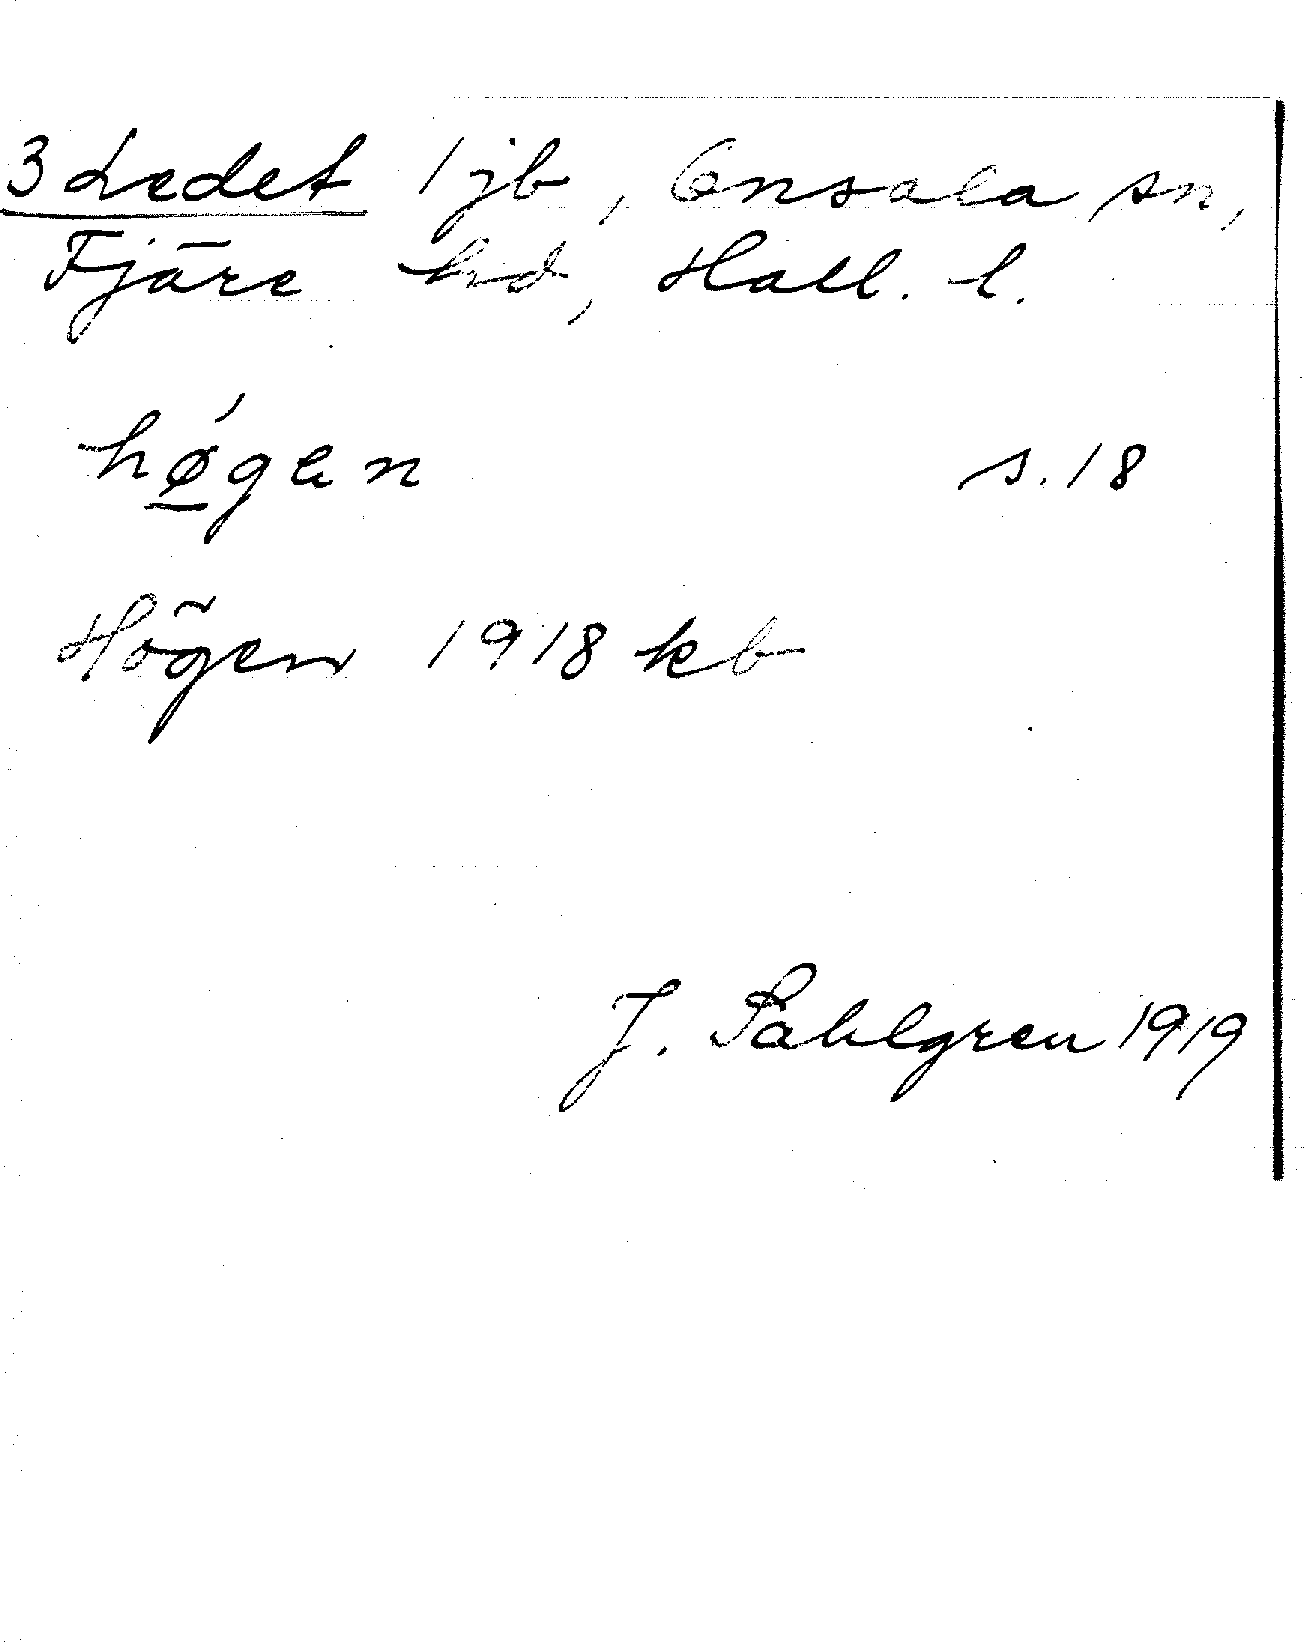 3 Ledet 1 jb, Onsala sn,
Fjäre hd, Hall. l.
hǿ̱gen s. 18
Högen 1918 kb
J. Sahlgren 1919